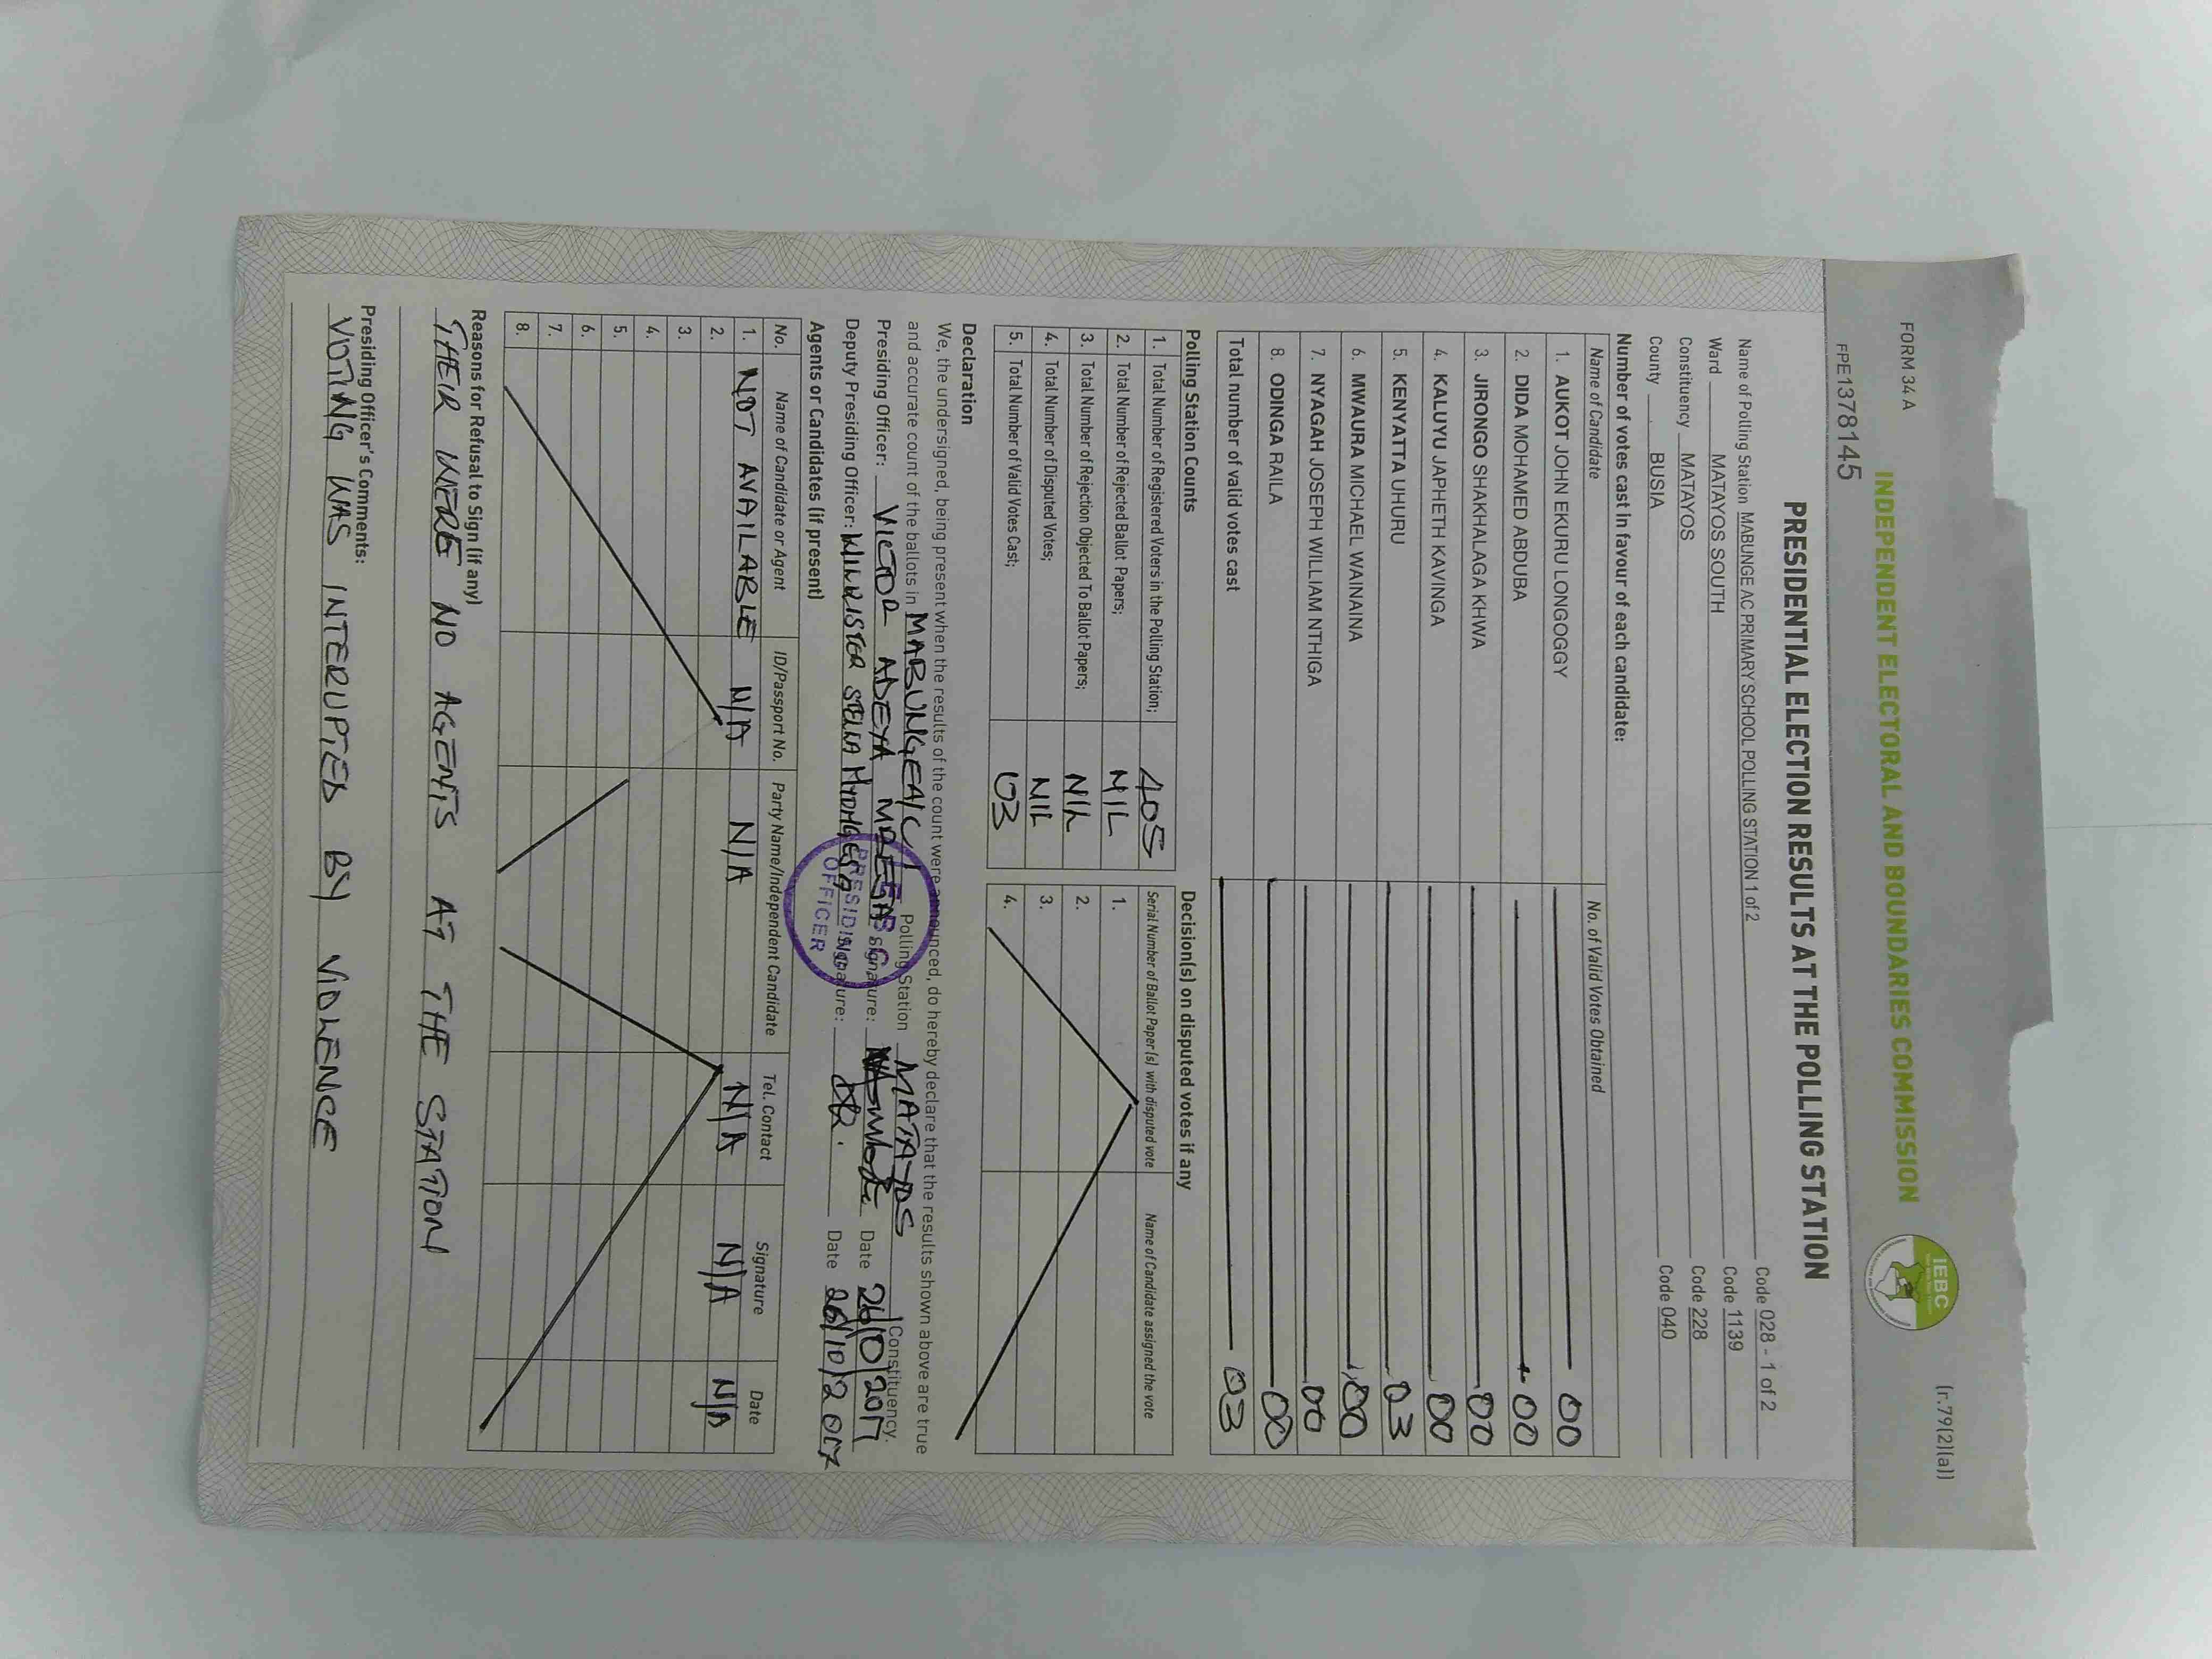 FORM 34 A
(r.79(2)(a))
INDEPENDENT ELECTORAL AND BOUNDARIES COMMISSION
IEBC
FPE1378145
PRESIDENTIAL ELECTION RESULTS AT THE POLLING STATION
Name of Polling Station MABUNGE AC PRIMARY SCHOOL POLLING STATION 1 of 2 Code 028 - 1 of 2
Ward MATAYOS SOUTH Code 1139
Constituency MATAYOS Code 228
County BUSIA Code 040
Number of votes cast in favour of each candidate:
Name of Candidate No. of Valid Votes Obtained
1. AUKOT JOHN EKURU LONGOGGY 00
2. DIDA MOHAMED ABDUBA 00
3. JIRONGO SHAKHALAGA KHWA 00
4. KALUYU JAPHETH KAVINGA 00
5. KENYATTA UHURU 03
6. MWAURA MICHAEL WAINAINA 00
7. NYAGAH JOSEPH WILLIAM NTHIGA 00
8. ODINGA RAILA 00
Total number of valid votes cast 03
Polling Station Counts
1. Total Number of Registered Voters in the Polling Station; 405
2. Total Number of Rejected Ballot Papers; NIL
3. Total Number of Rejection Objected To Ballot Papers; NIL
4. Total Number of Disputed Votes; NIL
5. Total Number of Valid Votes Cast; 03
Decision(s) on disputed votes if any
Serial Number of Ballot Paper (s) with disputed vote Name of Candidate assigned the vote
1.
2.
3.
4.
Declaration
We, the undersigned, being present when the results of the count were announced, do hereby declare that the results shown above are true
and accurate count of the ballots in MABUNGE A/C Polling Station MATAYOS Constituency.
Presiding Officer: VICTOR Signature: Date 26/10/2017
Deputy Presiding Officer: STELLA Signature: Date 26/10/2017
PRESIDING
OFFICER
Agents or Candidates (if present)
No. Name of Candidate or Agent ID/Passport No. Party Name/Independent Candidate Tel. Contact Signature Date
1. NOT AVAILABLE N/A N/A N/A N/A N/A
2.
3.
4.
5.
6.
7.
8.
Reasons for Refusal to Sign (if any)
THEIR WERE NO AGENTS AT THE STATION
Presiding Officer's Comments:
VOTING WAS INTERUPTED BY VIOLENCE